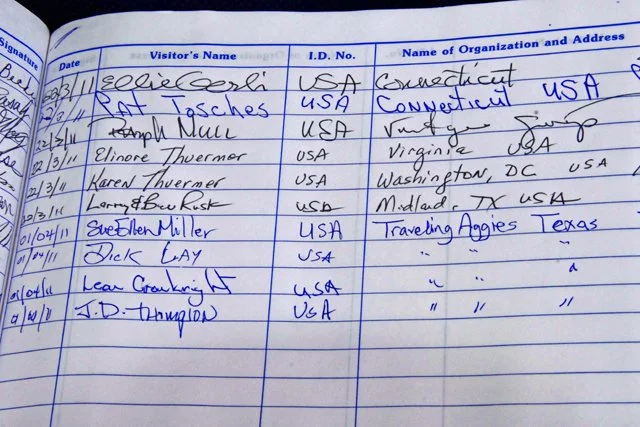 Signature Date Visitor's Name I.D. No. Name of Organization and Address
22/3/11 Ellie USA Connecticut
22/3/11 Pat Tosches USA Connecticut USA
22/3/11 Null USA
22/3/11 Elinore Thuermer USA Virginia USA
22/3/11 Karen Thuermer USA Washington, DC USA
22/3/11 Larry & Bev Rusk USA Midland, TX USA
01/04/11 Sue Ellen Miller USA Traveling Aggies Texas
01/04/11 Dick Lay USA " " "
01/04/11 USA " " "
J.D. USA " " "